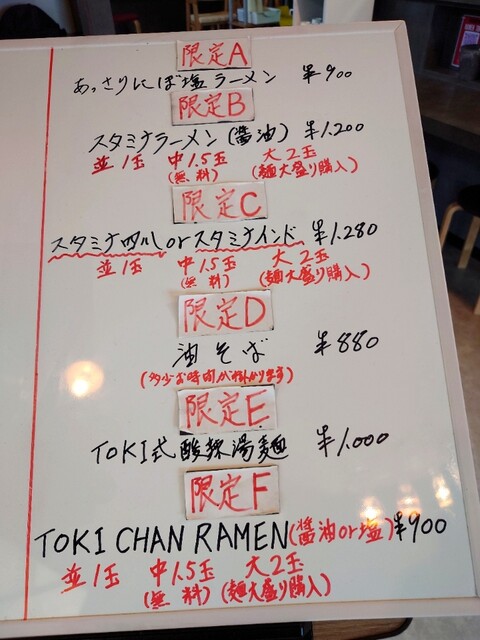 限定A
あっさりにぼ塩ラーメン ¥900
限定B
スタミナラーメン(醤油) ¥1.200
並1玉 中1.5玉 大2玉
(無料) (麺大盛り購入)
限定C
スタミナ四川orスタミナインド ¥1.280
並1玉 中1.5玉 大2玉
(無料) (麺大盛り購入)
限定D
油そば ¥880
(多少お時間が掛かります)
限定E
TOKI式酸辣湯麺 ¥1.000
限定F
TOKI CHAN RAMEN(醤油or塩)¥900
並1玉 中1.5玉 大2玉
(無料) (麺大盛り購入)